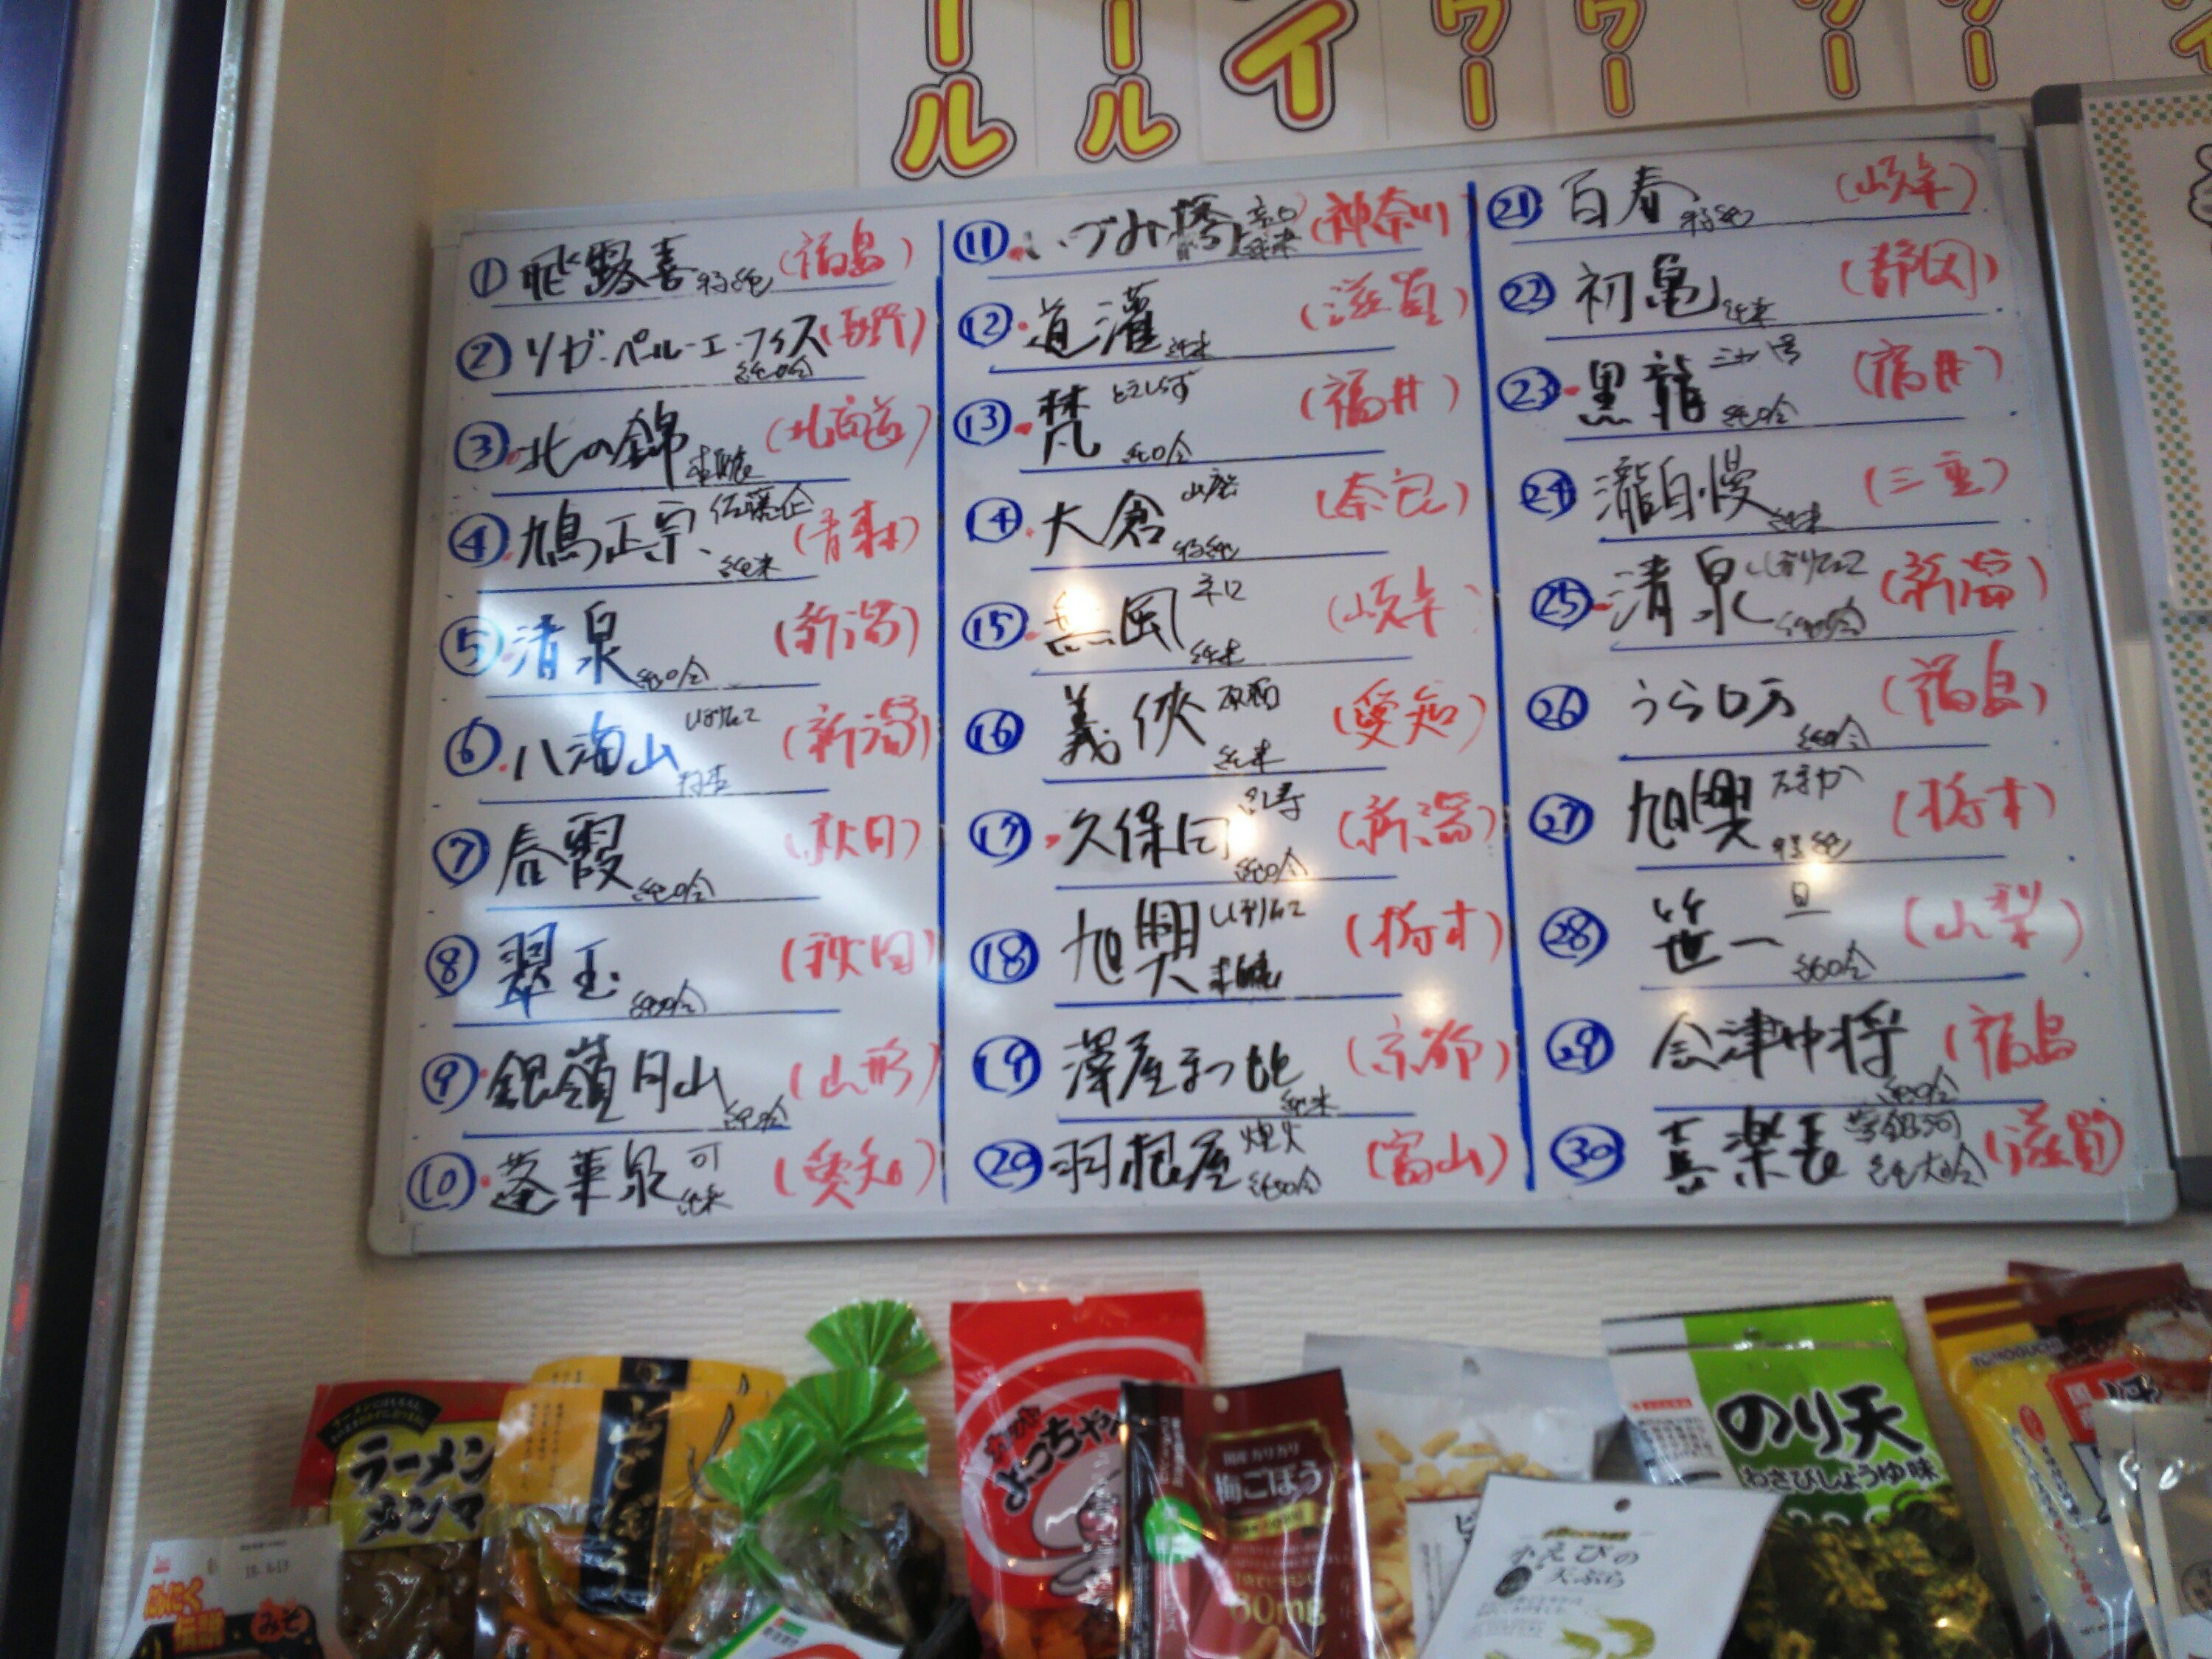 ール
ール
イ
ワー
ワー
ワー
ワー
① 飛露喜 特純 (福島)
② ソガ・ペール・エ・フィス 純吟 (長野)
③ 北の錦 本醸 (北海道)
④ 鳩正宗 佐藤企 純米 (青森)
⑤ 清泉 純吟 (新潟)
⑥ 八海山 しぼりたて 特本 (新潟)
⑦ 春霞 純吟 (秋田)
⑧ 翠玉 純吟 (秋田)
⑨ 銀嶺月山 純吟 (山形)
⑩ 蓬莱泉 可 純米 (愛知)
⑪ いづみ橋 辛口 純米 (神奈川)
⑫ 道灌 純米 (滋賀)
⑬ 梵 ときしらず 純吟 (福井)
⑭ 大倉 山廃 特純 (奈良)
⑮ 岡 辛口 純米 (岐阜)
⑯ 義侠 原酒 純米 (愛知)
⑰ 久保田 純吟 (新潟)
⑱ 旭興 しぼりたて 本醸 (栃木)
⑲ 澤屋まつもと 純米 (京都)
⑳ 羽根屋 煌火 純吟 (富山)
㉑ 百春 特純 (岐阜)
㉒ 初亀 純米 (静岡)
㉓ 黒龍 三十八号 純吟 (福井)
㉔ 瀧自慢 純米 (三重)
㉕ 清泉 しぼりたて 純吟 (新潟)
㉖ うらロ万 純吟 (福島)
㉗ 旭興 たまか 特純 (栃木)
㉘ 笹一 旦 純吟 (山梨)
㉙ 会津中将 純吟 (福島
㉚ 喜楽長 純大吟 (滋賀)
ラーメン
メンマ
みそ
よっちゃん
国産カリカリ
梅ごぼう
60mg
小えびの
天ぷら
のり天
わさびしょうゆ味